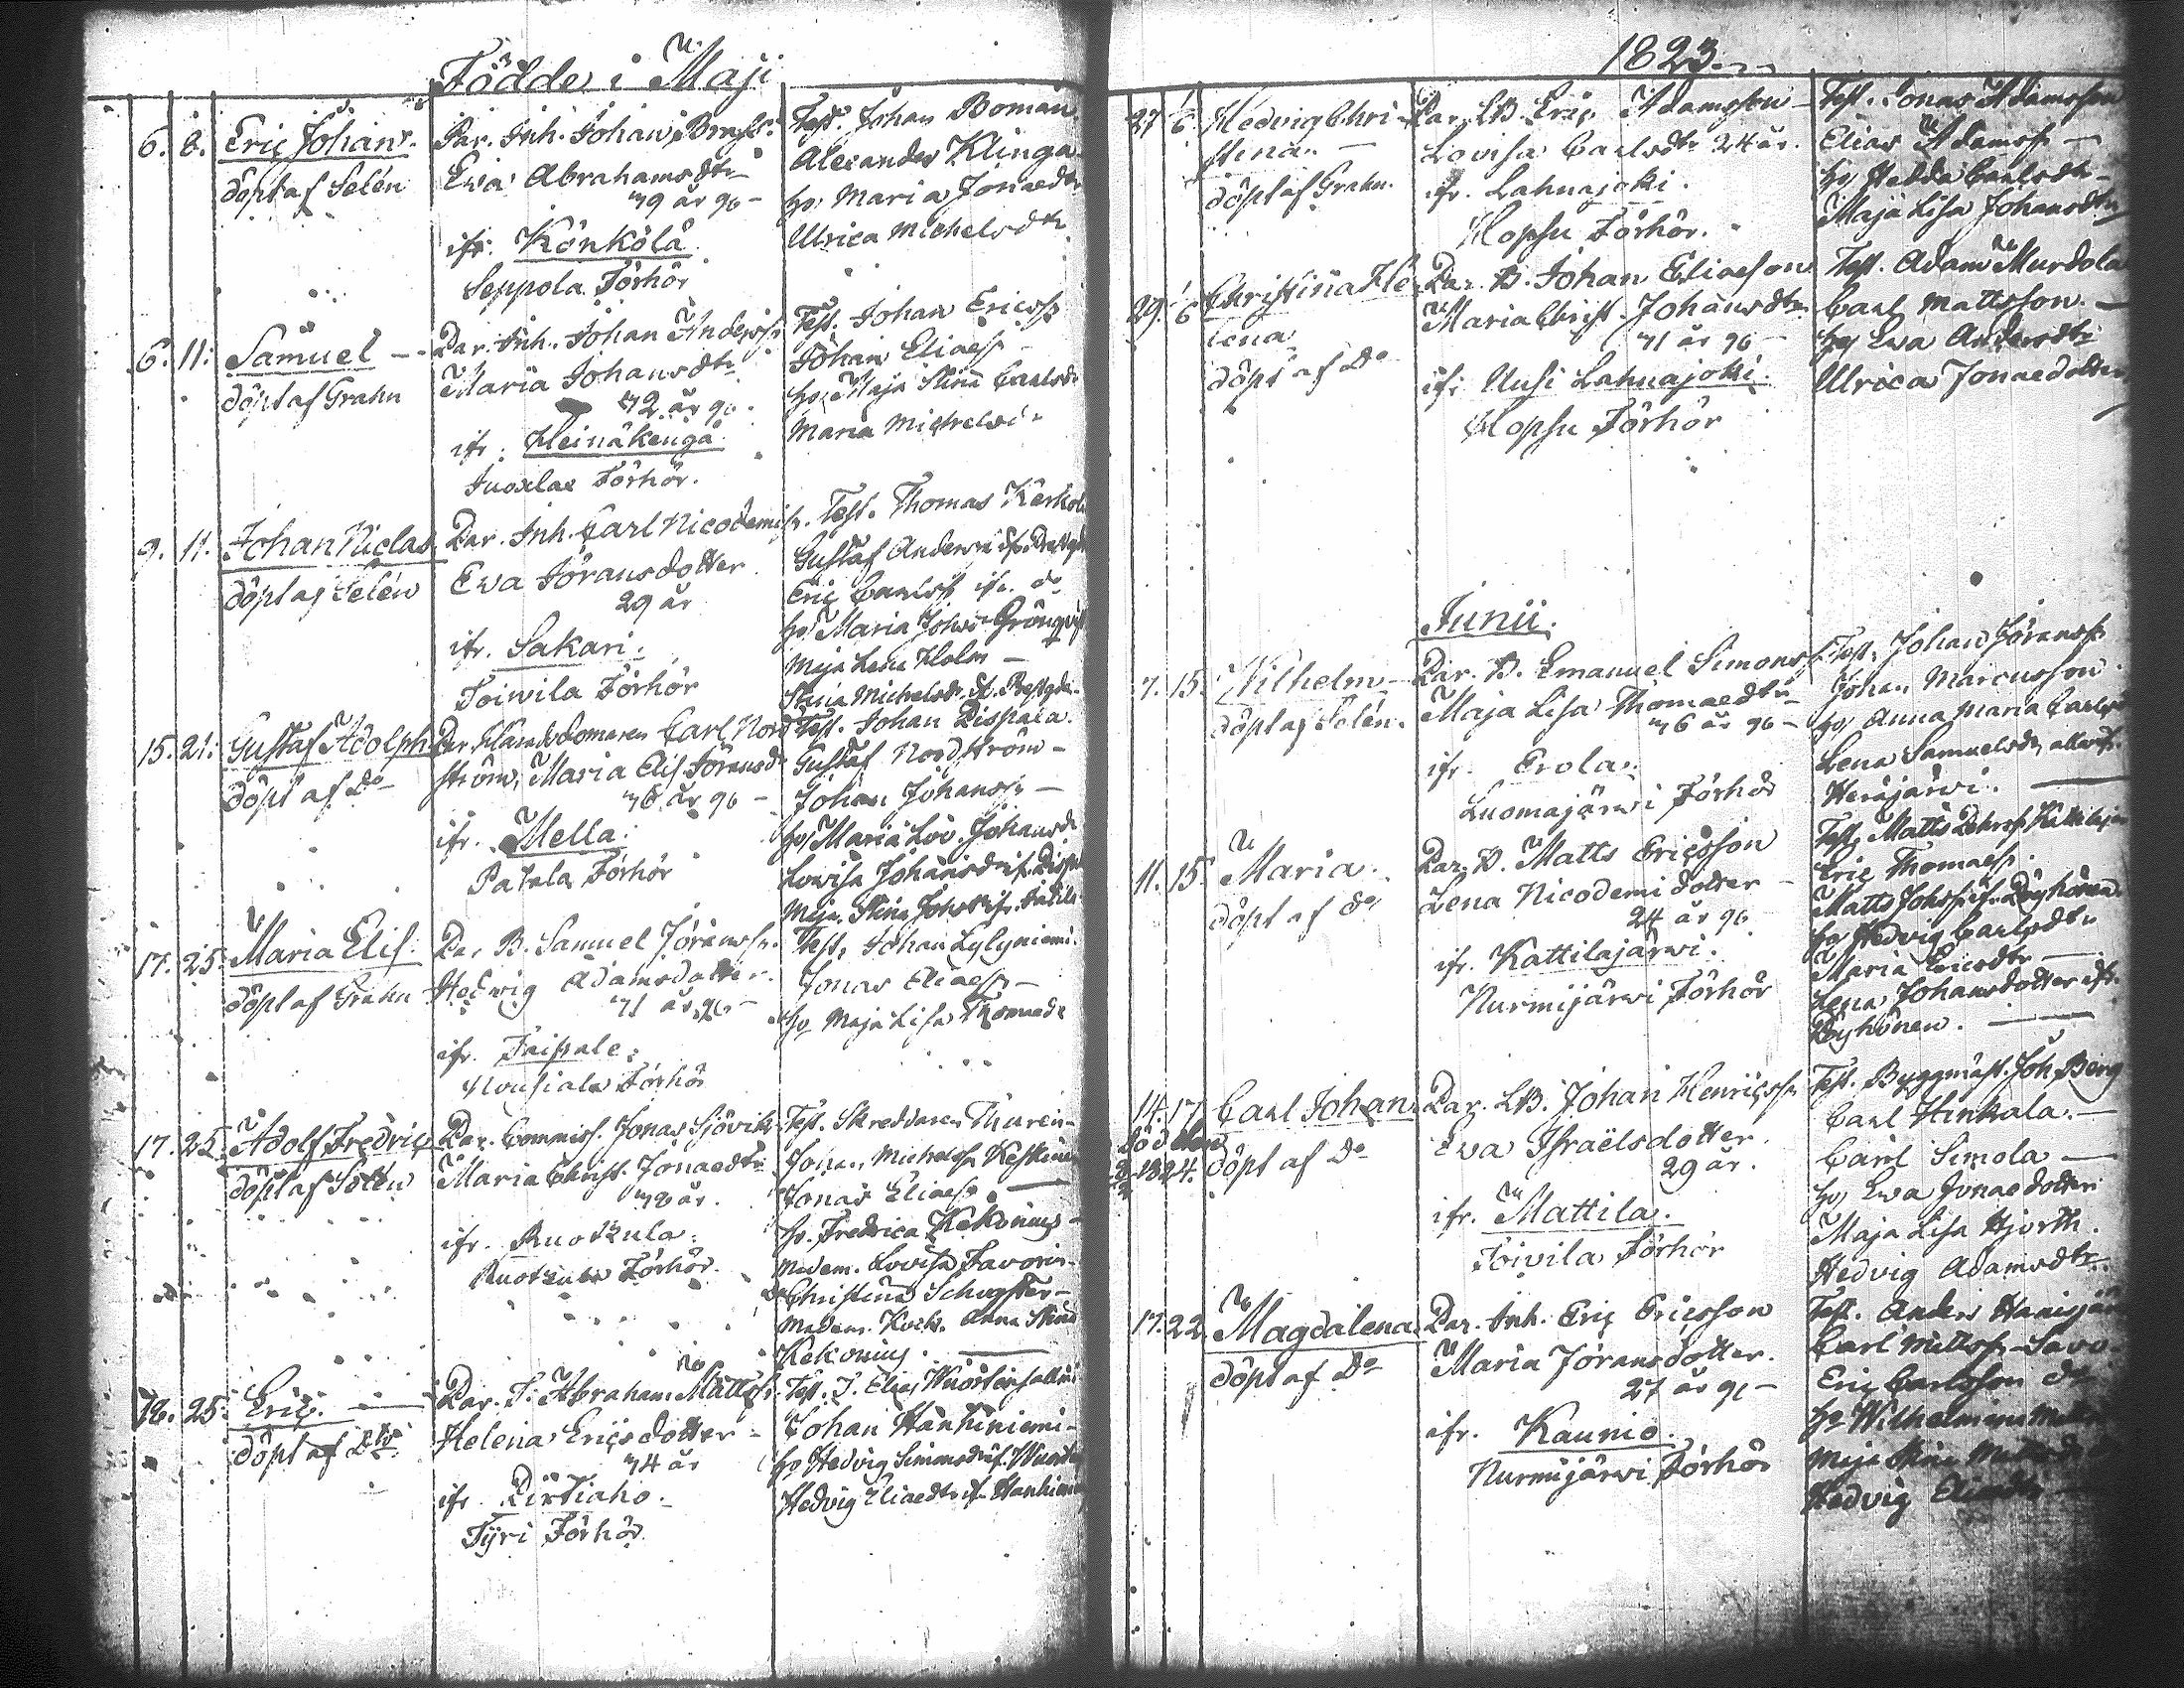 Födde i Maji
6. 8. Eric Johan.
döpt af Selén
Par. Inh. Johan
Ewa Abrahamsdtr
39 år gl
ifr. Könkölä
Seppola Förhör
Test. Johan Boman
Alexander Klinga
hu Maria Jonaedtr
Ulrica Michelsdtr
6. 11. Samuel
döpt af Grahn
Par. Inh. Johan Anderss
Maria Johansdtr
42 år gl
ifr. Heinäkengä
Juoxelae Förhör.
Test. Johan Ericss
Johan Eliaess
hu Maja Stina Carlsdr
Maria Michelsdr
9. 11. Johan Niclas
döpt af Selén
Par. Inh. Carl Nicodemiss.
Ewa Jöransdotter
29 år
ifr. Sakari.
Toiwila Förhör
Test. Thomas
Gustaf
Eric Carlss ifr. do
hu Maria Grönqvist
Maja Lena Holm
Stina Michelsdr
15. 21. Gustaf Adolph
döpt af Do
Par. Häradsdomaren Carl Nord
ström, Maria Elis. Jöransd
36 år gl
ifr. Mella.
Patala Förhör
Test. Johan Rispala.
Gustaf Nordström
Johan Johanss
hu Maria Lov. Johansdr
Lowisa Johansdr ifr.
Maja Stina Johsdr ifr.
17. 25. Maria Elis.
döpt af Grahn
Par B. Samuel Jöranss.
Hedwig Adamsdotter.
41 år gl
ifr. Taipale.
Nousiala Förhör
Test. Johan Lylyniemi.
Jonas Eliaess
hu Maja Lisa Thomaedr
17. 25. Adolf Fredric
döpt af Selén
Par. Commiss. Jonas Sjövik
Maria Christ. Jonaedtr
48 år.
ifr. Ruokula.
Ruokula Förhör.
Test. Skreddaren Thuren
Johan Michelss Keskinen
Jonas Eliaess
hu. Fredrica Kekonius
Madem. Lovisa Favorin
do Christina Schogster
Madem. Kock. Anna Stina
Kekonius.
18. 25. Eric.
döpt af Do
Par. T. Abraham Mattss.
Helena Ericsdotter
34 år
ifr Pirttiaho.
Tyri Förhör
Test. T. Elias
Johan Hanhiniemi
hu Hedvig Simonsdr if.
Hedvig Eliaedtr if. Hanhiniemi
1823.
27 1/6 Hedvig Chri-
stina.
döpt af Grahn.
Par. LB. Eric Adamsson
Lovisa Carlsdtr 24 år.
ifr. Lahnajoki.
Hopsu Förhör.
Test. Jonas Adamsson
Elias Adamss
hu Hedda Carlsdtr
Maja Lisa Johansdtr
29. 1/6 Christina He
lena
döpt af Do
Par. B. Johan Eliaeson
Maria Christ. Johansdtr
41 år gl
ifr Uusi Lahnajoki.
Hopsu Förhör
Test. Adam Murdola
Carl Mattsson.
hu Ewa Andersdtr
Ulrica Jonaedotter
Junii.
7. 15. Wilhelm
döpt af Selén.
Par. B. Emanuel Simonss
Maja Lisa Thomaedtr
36 år gl
ifr. Erola.
Luomajärwi Förhör
Test. Johan Jöranss
Johan Marcusson
hu Anna Maria Carlsd
Lena Samuelsdr alla ifr.
Heräjärwi.
11. 15. Maria.
döpt af do
Par. B. Matts Ericsson
Lena Nicodemidotter
24 år gl
ifr. Kattilajärwi.
Nurmijärwi Förhör
Test. Matts
Eric Thomaess.
Matts Johss ifr. Röyhönen
hu Hedvig Carlsdtr
Maria Ericsdtr
Lena Johansdotter ifr.
Röyhönen.
14. 17. Carl Johan
död den
1824. döpt af Do
Par. LB. Johan Henricss
Ewa Israëlsdotter.
29 år.
ifr. Mattila.
Toivila Förhör
Test. Byggmäst. Joh. Berg
Carl Hinkala.
Carl Simola
hu Ewa Jonaedotter
Maja Lisa Hjorth.
Hedvig Adamsdtr.
17. 22. Magdalena
döpt af Do
Par. Inh. Eric Ericsson
Maria Jöransdotter.
27 år gl
ifr. Kaunio.
Nurmijärwi Förhör
Test. Anders
Carl Mattss Savo
Eric Carlsson do
hu Wilhelmina
Maja Stina
Hedvig